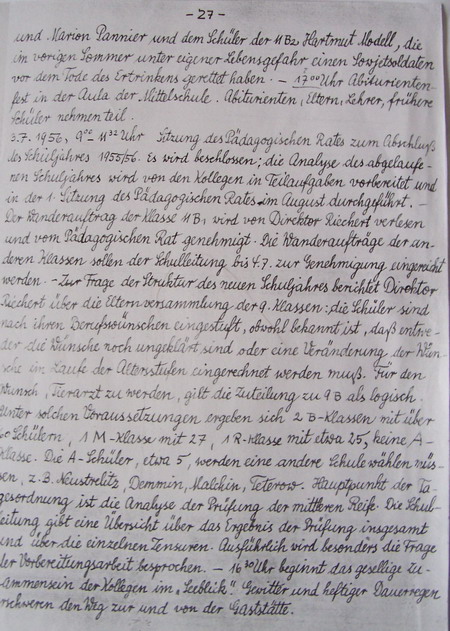 - 27 -
und Marion Pannier und dem Schüler der 11 B2 Hartmut Modell, die
im vorigen Sommer unter eigener Lebensgefahr einen Sowjetsoldaten
vor dem Tode des Ertrinkens gerettet haben. - 17⁰⁰ Uhr Abiturienten-
fest in der Aula der Mittelschule. Abiturienten, Eltern, Lehrer, frühere
Schüler nehmen teil.
3.7. 1956, 9⁰⁰ - 11³² Uhr Sitzung des Pädagogischen Rates zum Abschluß
des Schuljahres 1955/56. Es wird beschlossen; die Analyse des abgelaufe-
nen Schuljahres wird von den Kollegen in Teilaufgaben vorbereitet und
in der 1. Sitzung des Pädagogischen Rates im August durchgeführt. -
Der Wanderauftrag der Klasse 11 B1 wird von Direktor Riechert verlesen
und vom Pädagogischen Rat genehmigt. Die Wanderaufträge der an-
deren Klassen sollen der Schulleitung bis 4.7. zur Genehmigung eingereicht
werden. - Zur Frage der Struktur des neuen Schuljahres berichtet Direktor
Riechert über die Elternversammlung der 9. Klassen: die Schüler sind
nach ihren Berufswünschen eingestuft, obwohl bekannt ist, daß entwe-
der die Wünsche noch ungeklärt sind oder eine Veränderung der Wün-
sche im Laufe der Altersstufen eingerechnet werden muß. Für den
Wunsch, Tierarzt zu werden, gilt die Zuteilung zu 9 B als logisch.
Unter solchen Voraussetzungen ergeben sich 2 B-Klassen mit über
60 Schülern, 1 M-Klasse mit 27, 1 R-Klasse mit etwa 25, keine A-
Klasse. Die A-Schüler, etwa 5, werden eine andere Schule wählen müs-
sen, z.B. Neustrelitz, Demmin, Malchin, Teterow. Hauptpunkt der Ta-
gesordnung ist die Analyse der Prüfung der mittleren Reife. Die Schul-
leitung gibt eine Übersicht über das Ergebnis der Prüfung insgesamt
und über die einzelnen Zensuren. Ausführlich wird besonders die Frage
der Vorbereitungsarbeit besprochen. - 16³⁰ Uhr beginnt das gesellige Zu-
sammensein der Kollegen im „Seeblick". Gewitter und heftiger Dauerregen
erschweren den Weg zur und von der Gaststätte.